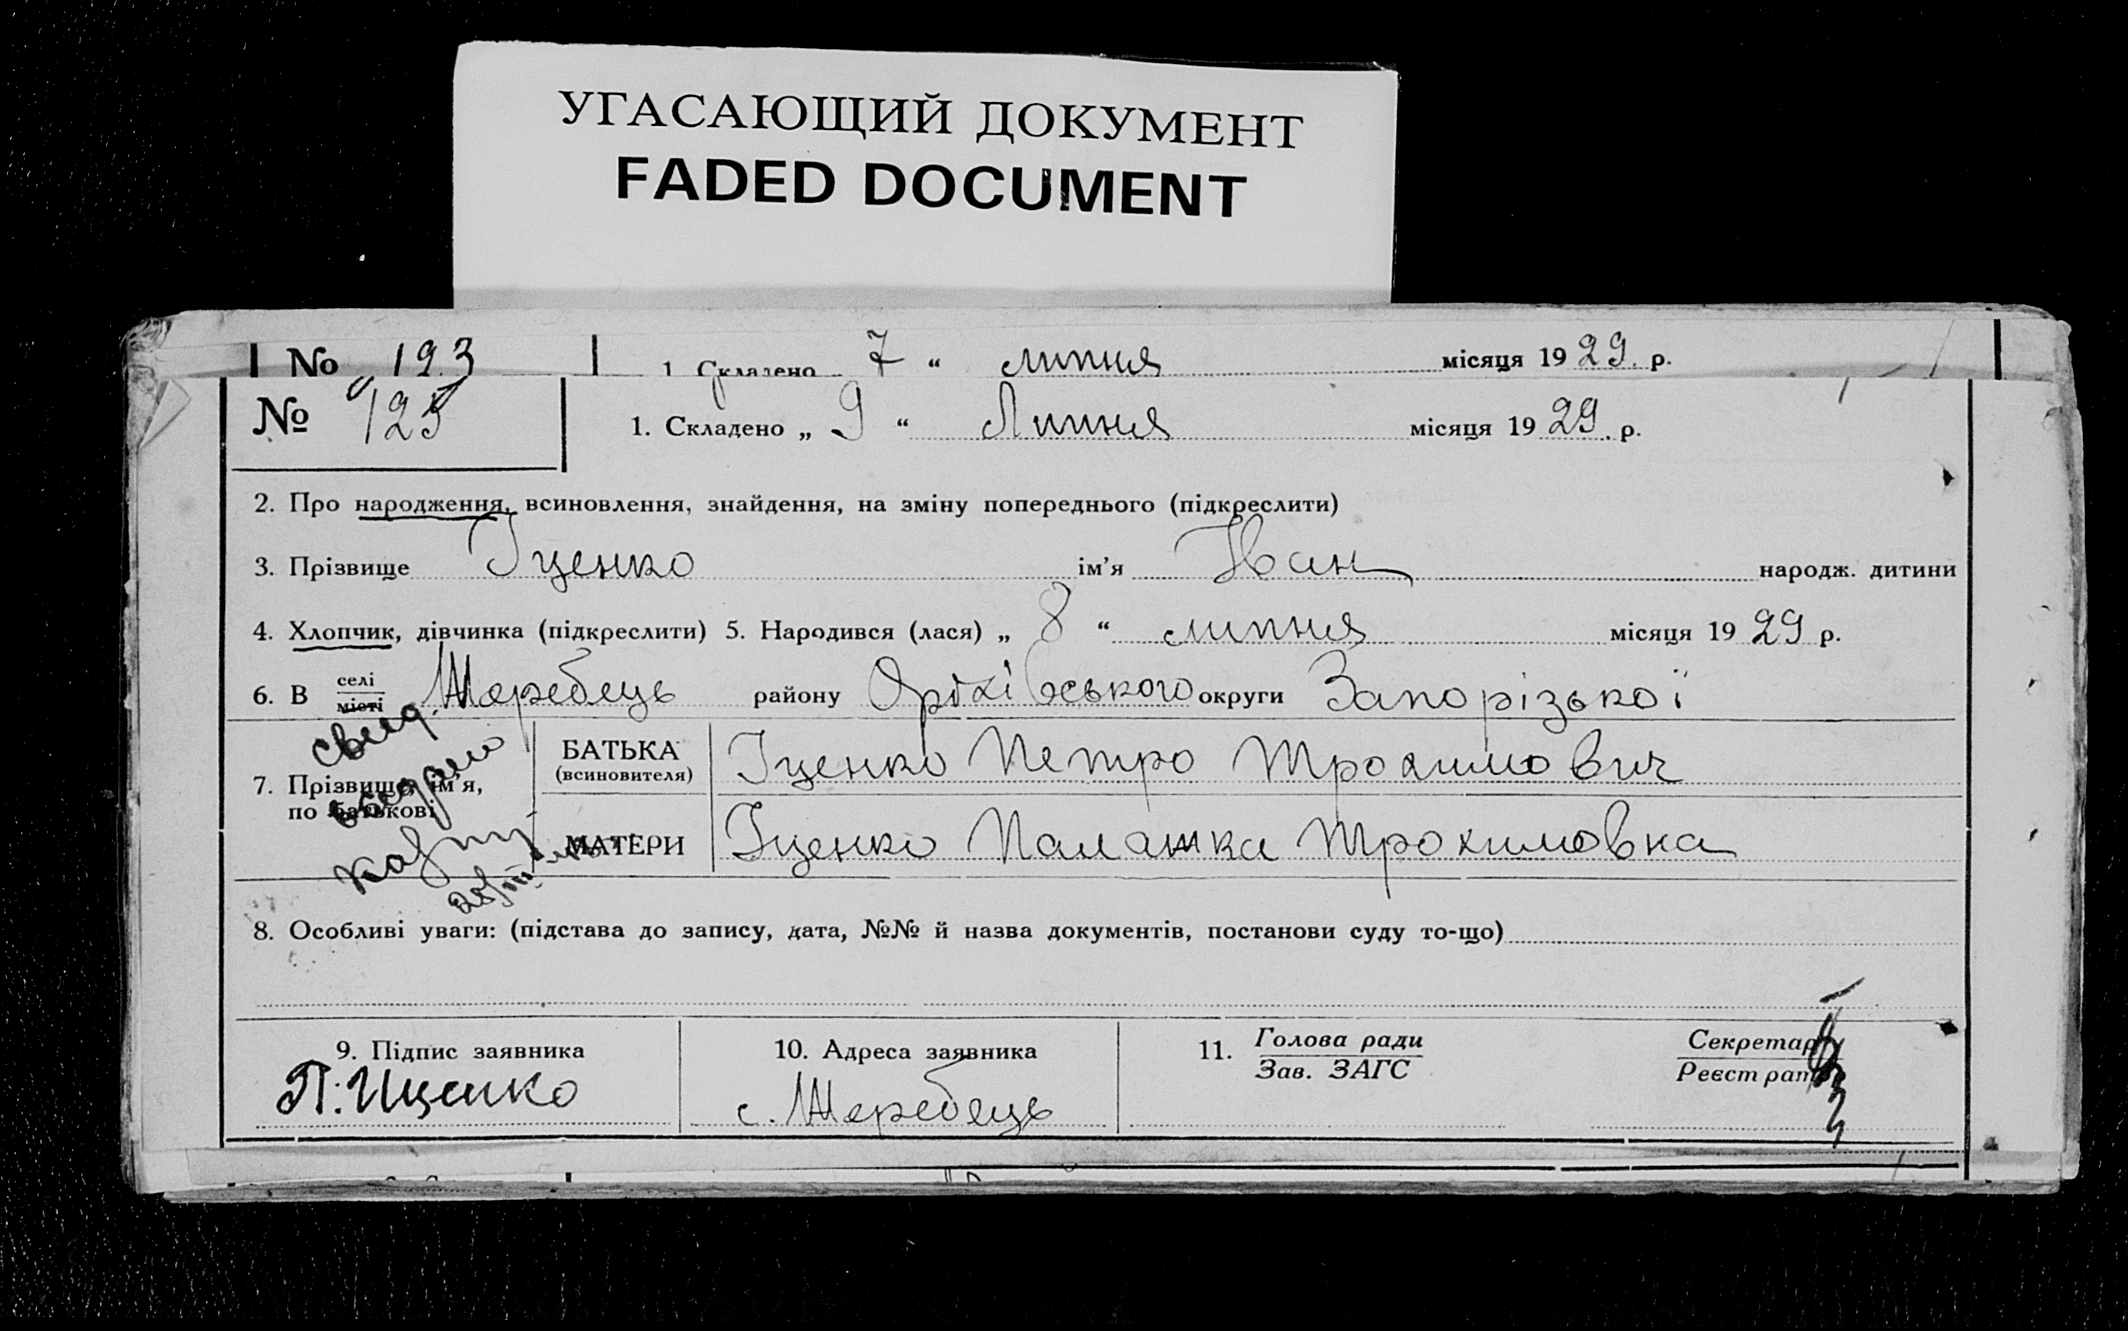 УГАСАЮЩИЙ ДОКУМЕНТ
FADED DOCUMENT
№ 123 1. Складено 7 “ липня місяця 1929. р.
№ 125 1. Складено „ 9 “ Липня місяця 1929. р.
2. Про народження, всиновлення, знайдення, на зміну попереднього (підкреслити)
3. Прізвище Іценко ім'я Іван народж. дитини
4. Хлопчик, дівчинка (підкреслити) 5. Народився (лася) „ 8 “ липня місяця 1929 р.
6. В селі місті Жеребець району Оріхівського округи Запорізької
7. Прізвище, ім'я, по батькові
БАТЬКА (всиновителя) Іценко Петро Трохимович
МАТЕРИ Іценко Палажка Трохимовка
8. Особливі уваги: (підстава до запису, дата, №№ й назва документів, постанови суду то-що)
9. Підпис заявника
П. Иценко
10. Адреса заявника
с. Жеребець
11. Голова ради
Зав. ЗАГС
Секретар
Реєстратор